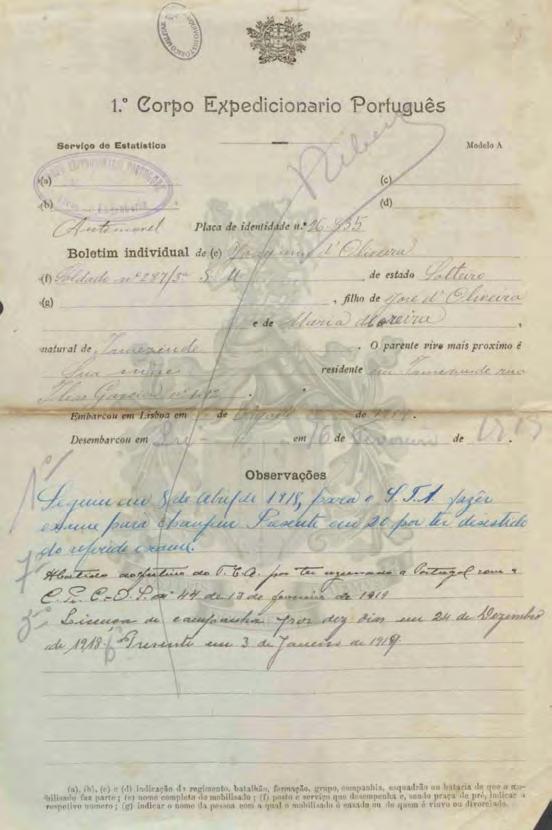 1.º Corpo Expedicionario Português
Serviço de Estatistica
Modelo A
(a)
(c)
(b)
(d)
Automovel
Placa de identidade n.º
Boletim individual de (e) d'Oliveira
(f) Soldado nº 287/3ª de estado Solteiro
(g) , filho de José d'Oliveira
e de Maria Moreira ,
natural de . O parente vivo mais proximo é
Sua residente em rua
Embarcou em Lisboa em de de
Desembarcou em em 16 de Fevereiro de 1919 .
Observações
Seguiu em 8 de Abril de 1918, para o S.T.A fazêr
exame para chauffeur Presente em 20 por ter desistido
do referido exame.
Abatido ao efectivo do por ter regressado a Portugal com o
nº 44 de 13 de fevereiro de 1919
Licença de campanha por dez dias em 24 de Dezembro
de 1918 Presente em 3 de Janeiro de 1919
(a), (b), (c) e (d) indicação do regimento, batalhão, formação, grupo, companhia, esquadrão ou bataria de que o mo-
bilisado faz parte; (e) nome completo do mobilisado; (f) posto e serviço que desempenha e, sendo praça de pré, indicar o
respetivo numero; (g) indicar o nome da pessoa com a qual o mobilisado é casado ou de quem é viuvo ou divorciado.